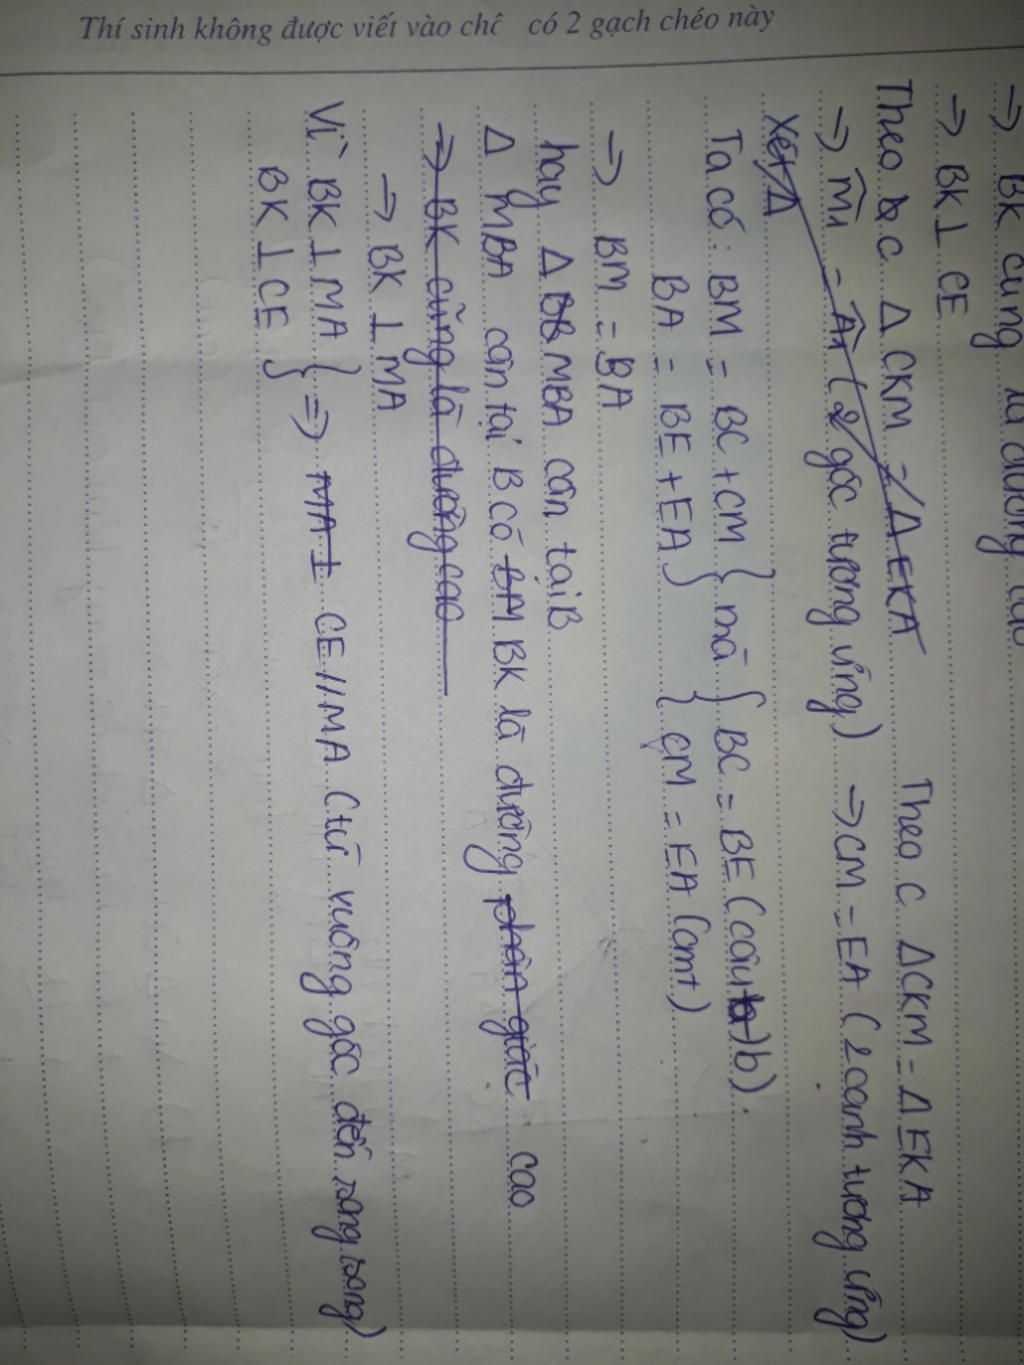 Thí sinh không được viết vào chỗ có 2 gạch chéo này
→ BK cũng là đường cao
→ BK ⊥ CE
Theo c Δ CKM = Δ EKA Theo c ΔCKM = Δ EKA
→ M̂1 = Â1 (2 góc tương ứng) → CM = EA (2 cạnh tương ứng)
Xét Δ
Ta có: BM = BC + CM } mà { BC = BE (câu b) b).
BA = BE + EA } { CM = EA (cmt)
→ BM = BA
hay Δ BB MBA cân tại B
Δ MBA cân tại B có BM BK là đường phân giác cao
→ BK cũng là đường cao
→ BK ⊥ MA
Vì BK ⊥ MA } => MA ⊥ CE // MA (từ vuông góc đến song song)
BK ⊥ CE }